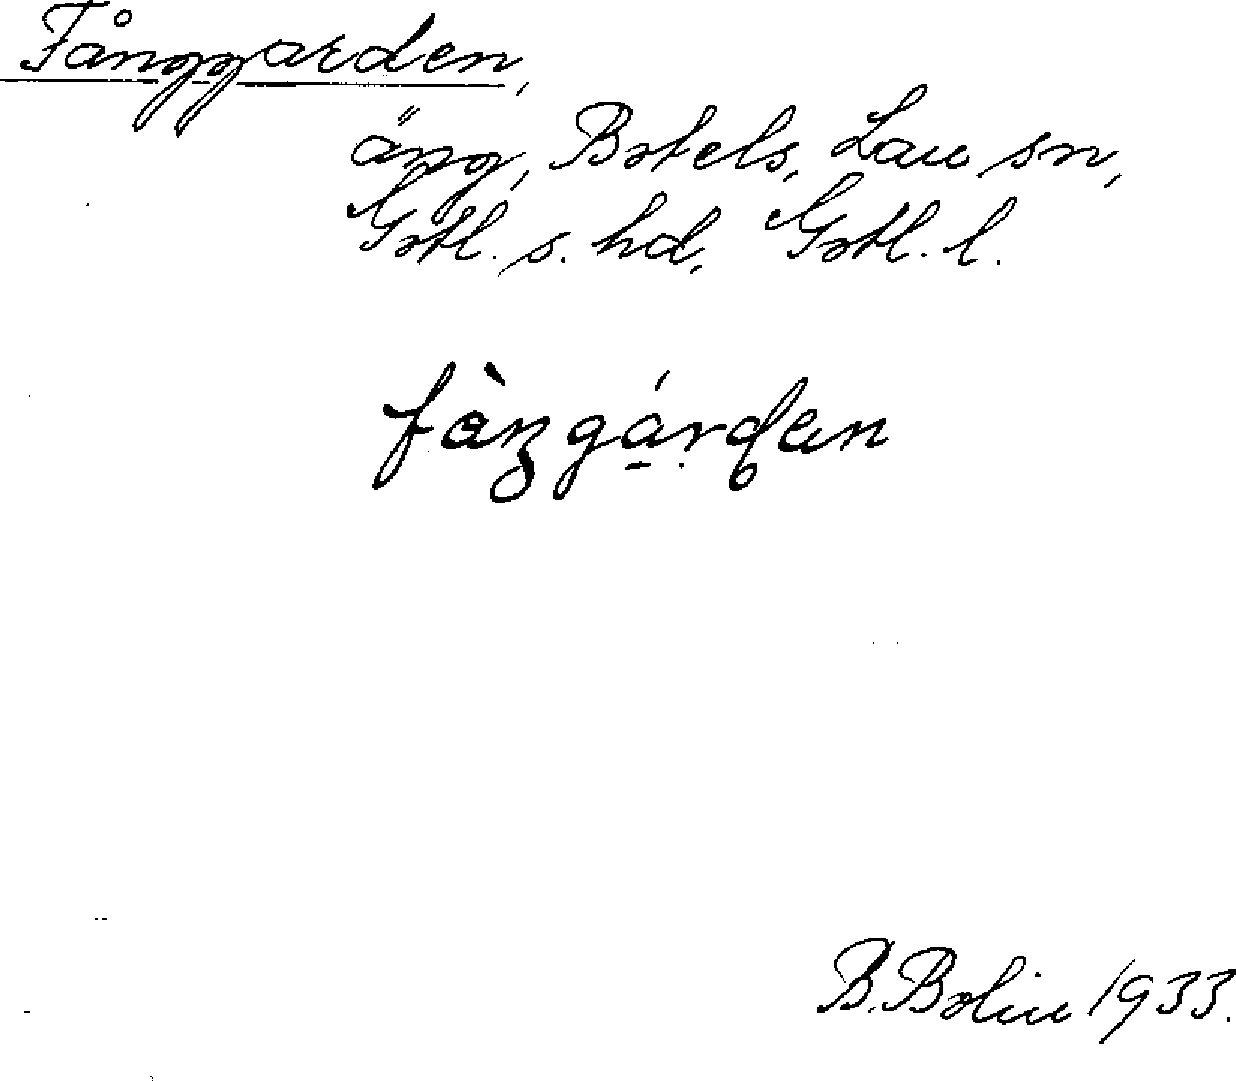 Fånggarden,
äng, Botels, Lau sn,
Gotl. s. hd, Gotl. l.
fàŋgá̱rḍan
B. Bolin 1933.